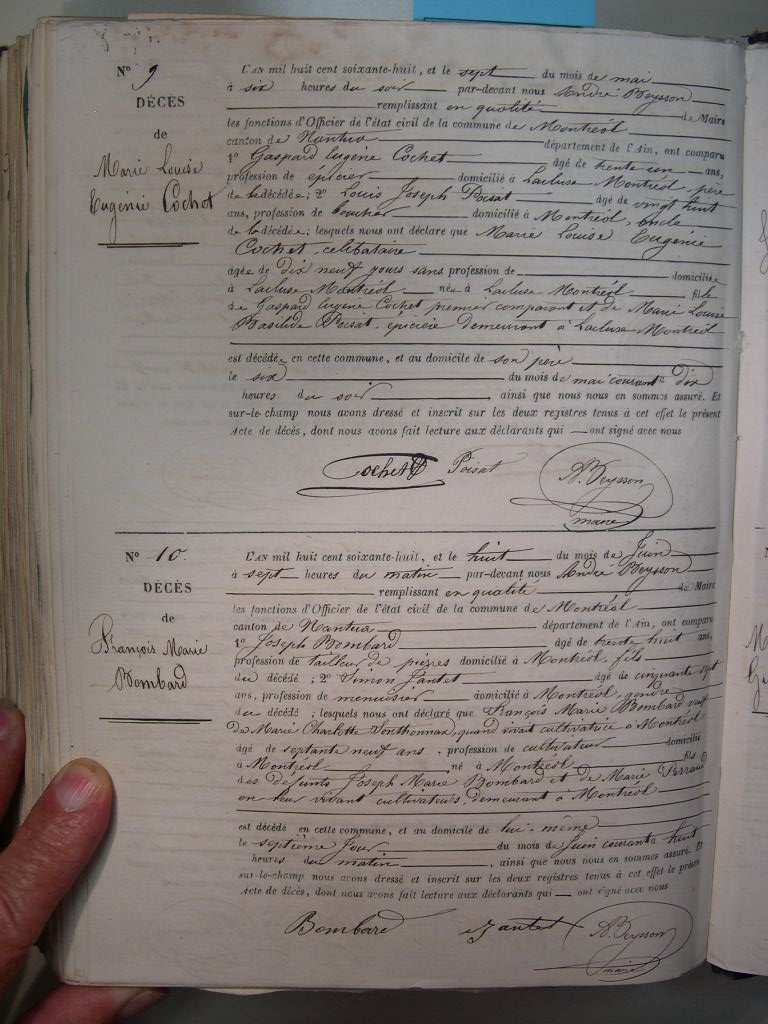 N° 9
DÉCÈS
de
Marie Louise
Eugénie Cochet
L'AN mil huit cent soixante-huit, et le sept du mois de mai
à six heures du soir par-devant nous André Beysson
remplissant en qualité de Maire
les fonctions d'Officier de l'état civil de la commune de Montréol
canton de Nantua département de l'Ain, ont comparu
1° Gaspard Eugène Cochet âgé de trente un ans,
profession de épicier domicilié à Lacluse Montréol, père
de la décédée; 2° Louis Joseph Poisat âgé de vingt huit
ans, profession de boucher domicilié à Montréol, oncle
de la décédée; lesquels nous ont déclaré que Marie Louise Eugénie
Cochet, celibataire
agée de dix neuf jours sans profession de domiciliée
à Lacluse Montréol née à Lacluse Montréol fille
de Gaspard Eugène Cochet premier comparant et de Marie Louise
Basilide Poisat, épicière demeurant à Lacluse Montréol
est décédée en cette commune, et au domicile de son père
le six du mois de mai courant à dix
heures du soir, ainsi que nous nous en sommes assuré. Et
sur-le-champ nous avons dressé et inscrit sur les deux registres tenus à cet effet le présent
Acte de décès, dont nous avons fait lecture aux déclarants qui — ont signé avec nous
Cochet Poisat A. Beysson
maire
N° 10.
DÉCÈS
de
François Marie
Bombard
L'AN mil huit cent soixante-huit, et le huit du mois de Juin
à sept heures du matin par-devant nous André Beysson
remplissant en qualité de Maire
les fonctions d'Officier de l'état civil de la commune de Montréol
canton de Nantua département de l'Ain, ont comparu
1° Joseph Bombard âgé de trente huit ans,
profession de tailleur de pierres domicilié à Montréol, fils
du décédé; 2° Simon Jantet âgé de cinquante sept
ans, profession de menuisier domicilié à Montréol, gendre
du décédé; lesquels nous ont déclaré que François Marie Bombard veuf
de Marie Charlotte Sonthonnax, quand vivait cultivatrice à Montréol
âgé de septante neuf ans, profession de cultivateur domicilié
à Montréol né à Montréol fils
des défunts Joseph Marie Bombard et de Marie Perraud
en leur vivant cultivateurs, demeurant à Montréol
est décédé en cette commune, et au domicile de lui-même
le septième jour du mois de Juin courant à huit
heures du matin, ainsi que nous nous en sommes assuré. Et
sur-le-champ nous avons dressé et inscrit sur les deux registres tenus à cet effet le présent
Acte de décès, dont nous avons fait lecture aux déclarants qui — ont signé avec nous
Bombard Jantet A. Beysson
maire